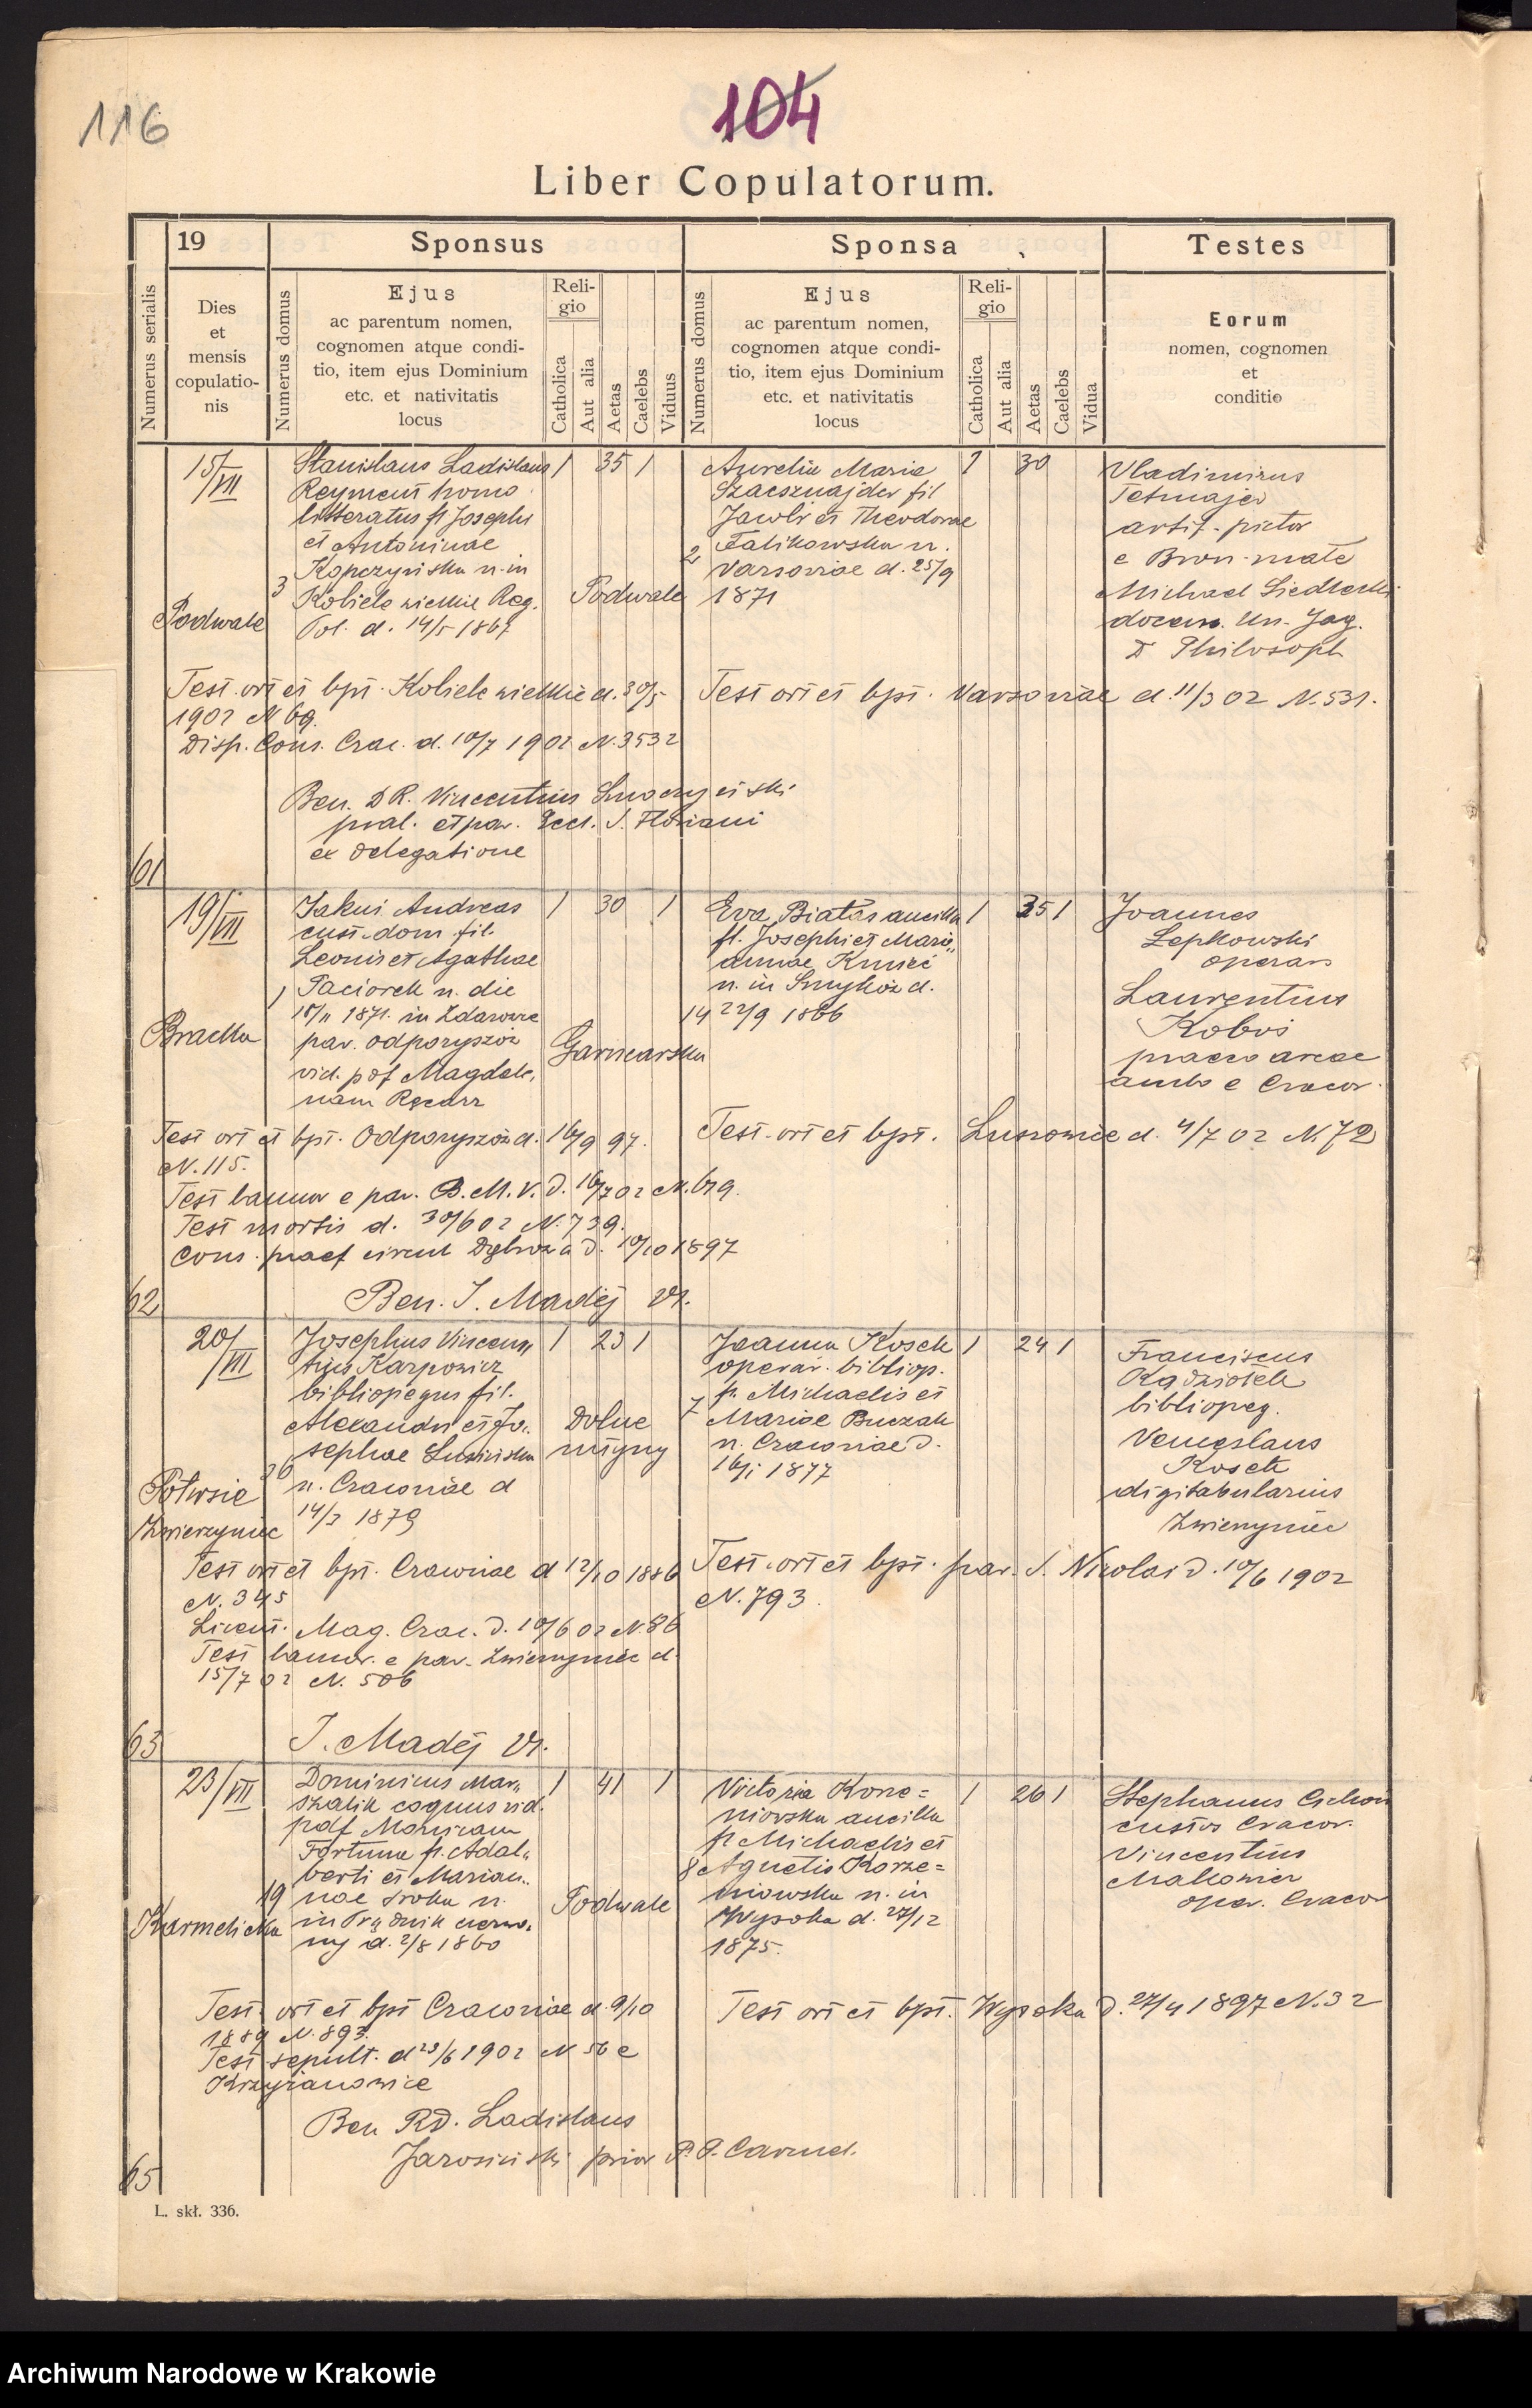 116
104
Liber Copulatorum.
19
Sponsus
Sponsa
Testes
Numerus serialis
Dies
et
mensis
copulatio-
nis
Numerus domus
Ejus
ac parentum nomen,
cognomen atque condi-
tio, item ejus Dominium
etc. et nativitatis
locus
Reli-
gio
Catholica
Aut alia
Aetas
Caelebs
Viduus
Numerus domus
Ejus
ac parentum nomen,
cognomen atque condi-
tio, item ejus Dominium
etc. et nativitatis
locus
Reli-
gio
Catholica
Aut alia
Aetas
Caelebs
Vidua
Eorum
nomen, cognomen
et
conditio
61
15/VII
Podwale
3
Stanislaus Ladislaus
Reymont homo
litteratus fl Josephi
et Antoninae
Kopczyńska n. in
Kobiele wielkie Reg.
Pol. d. 14/5 1867
1 35 1
Podwale
2
Aurelia Maria
Szacsznajder fil
Jacobi et Theodorae
Falikowska n.
Varsoviae d. 25/9
1871
1 30
Vladimirus
Tetmajer
artif. pictor
e Bron. małe
Michael Siedlecki
docens. Un. Jag.
D Philosoph
Test. ort et bpt. Kobiele wielkie d. 30/5
1902 N 69.
Disp. Cons. Crac. d. 10/7 1902 N. 3532
Test ort et bpt. Varsoviae d. 11/3 02 N. 531.
Ben. D R. Vincentius
pral. et par. Eccl. S. Floriani
ex delegatione
62
19/VII
Bracka
1
Jakui Andreas
cust. dom. fil.
Leonis et Agathae
Paciorek n. die
1871. in Zdarowa
par. Odporyszów
vid. pof Magdale,
nam
1 30 1
Garncarska
14
Eva Białas ancilla
fl. Josephi et Mari,,
annae Kmieć
n. in d.
22/9 1866
1 35 1
Joannes
Łepkowski
operar
Laurentius
Kobos
ambo e Cracov.
Test ort et bpt. Odporyszów d. 16/9 97.
N. 115.
Test bannor e par. B. M. V. d. 16/7 02 N. 619.
Test mortis d. 30/6 02 N. 739.
Cons. praef circul Dąbrowa d. 10/10 1897
Test. ort et bpt. d. 4/7 02 N. 72
Ben. J. Madej Vr.
63
20/VII
Półwsie
Zwierzyniec
Josephus Vincen,,
tius Karpowicz
bibliopegus fil.
Alexandri et Jo..
sephae
n. Cracoviae d
14/3 1879
1 23 1
Dolne
młyny
7
Joanna Kosek
operar. bibliop.
fl. Michaelis et
Mariae Buczak
n. Cracoviae d.
16/1 1877
1 24 1
Franciscus
Kądziołek
bibliopeg.
Venceslaus
Kosek
digitabularius
Zwierzyniec
Test ort et bpt. Cracoviae d 12/10 1886
N. 345
Licent. Mag. Crac. d. 10/6 02 N. 86
Test bannor. e par. Zwierzyniec d.
15/7 02 N. 506
Test. ort et bpt. par. S. Nicolai d. 10/6 1902
N. 793.
J. Madej Vr.
65
23/VII
Karmelicka
19
Dominicus Mar,,
szalik coquus vid.
pof
Fortuna fl. Adal,,
berti et Marian..
nae Sroka n.
in Prądnik czerwo,
ny d. 2/8 1860
1 41 1
Podwale
8
Victoria Korze=
niowska ancilla
fl Michaelis et
Agnetis Korze=
niowska n. in
Wysoka d. 27/12
1875.
1 26 1
Stephanus Cichoń
custos Cracov.
Vincentius
Makowicz
oper. Cracov
Test. ort et bpt Cracoviae d. 9/10
1889 N. 893.
Test sepult. d 23/6 1902 N 56 e
Krzyżanowice
Test ort et bpt. Wysoka d. 27/4 1897 N. 32
Ben RD. Ladislaus
Jarosiński prior P. P. Carmel.
L. skł. 336.
Archiwum Narodowe w Krakowie